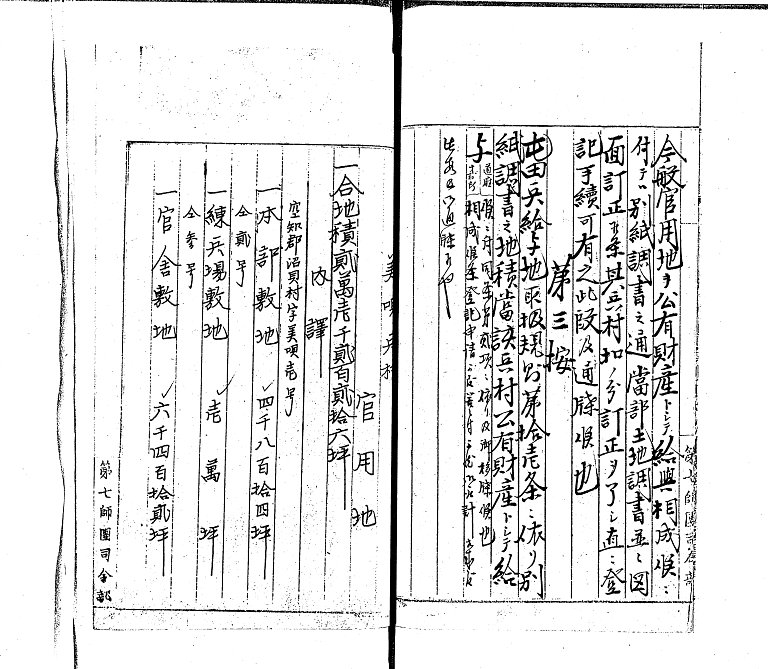 今般官用地ヲ公有財産トシテ給與相成候ニ
付テハ別紙調書之通當部土地調書並ニ図
面訂正ヲ要シ兵村扣ノ分訂正ヲ了シ直ニ登
記手續可有之此段及通牒候也
第三按
屯田兵給与地取扱規則第拾壱条ニ依リ別
紙調書之地積當該兵村公有財産トシテ給
与
相成候条登記申請
第七師團司令部
美唄兵村
官用地
一合地積貳萬壱千貳百貳拾六坪
内譯
空知郡沼貝村字美唄壱号
一本部敷地 四千八百拾四坪
仝貳号
一練兵場敷地 壱萬坪
仝参号
一官舎敷地 六千四百拾貳坪
第七師團司令部